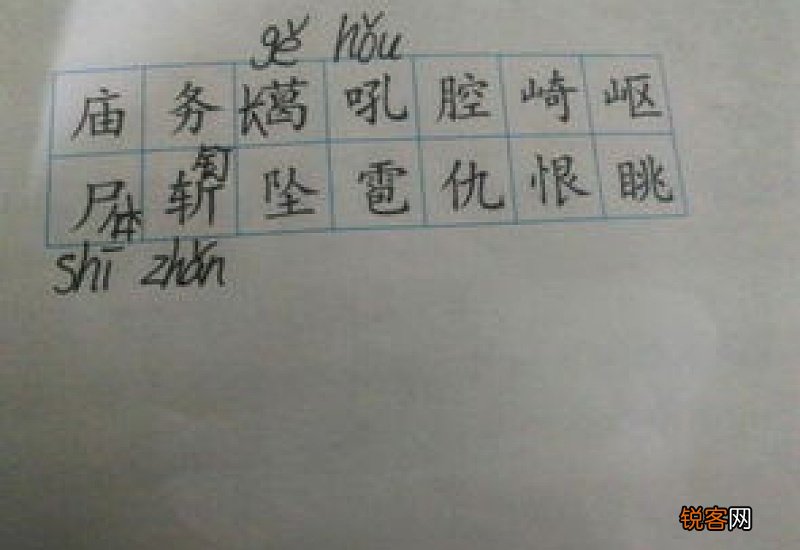 gě hǒu
庙 务 长葛 吼 腔 崎 岖
尸体 斩钉 坠 雹 仇 恨 眺
shī zhǎn
锐客网